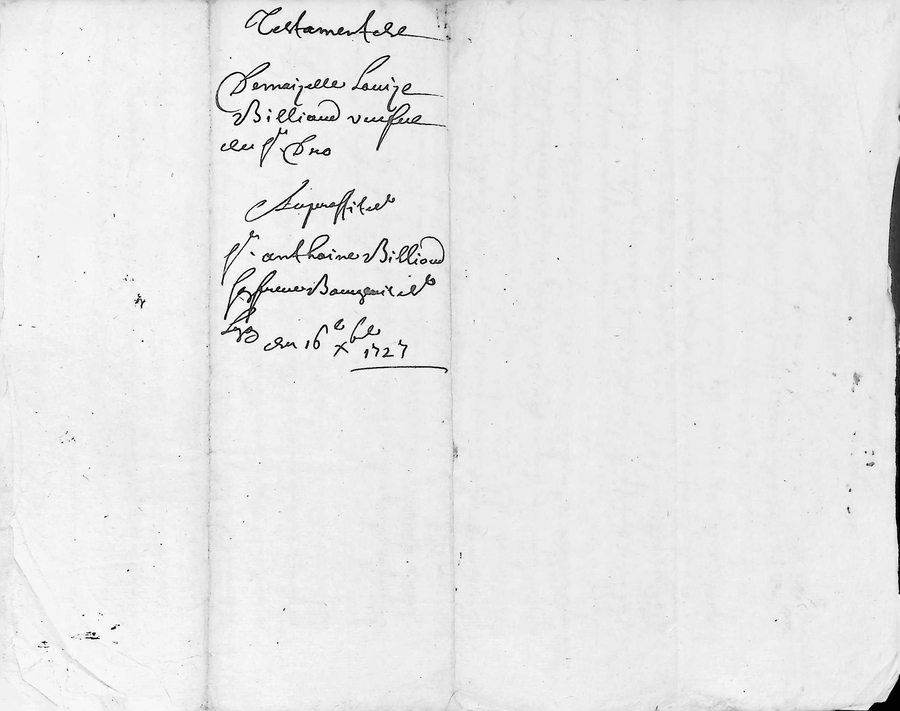 Testament de
Demoizelle Louize
Billiaud veufve
du Sr. Dro
Au proffit de
Sr. anthoine Billioud
son frere Bourgeois de
du 16e xbre 1727